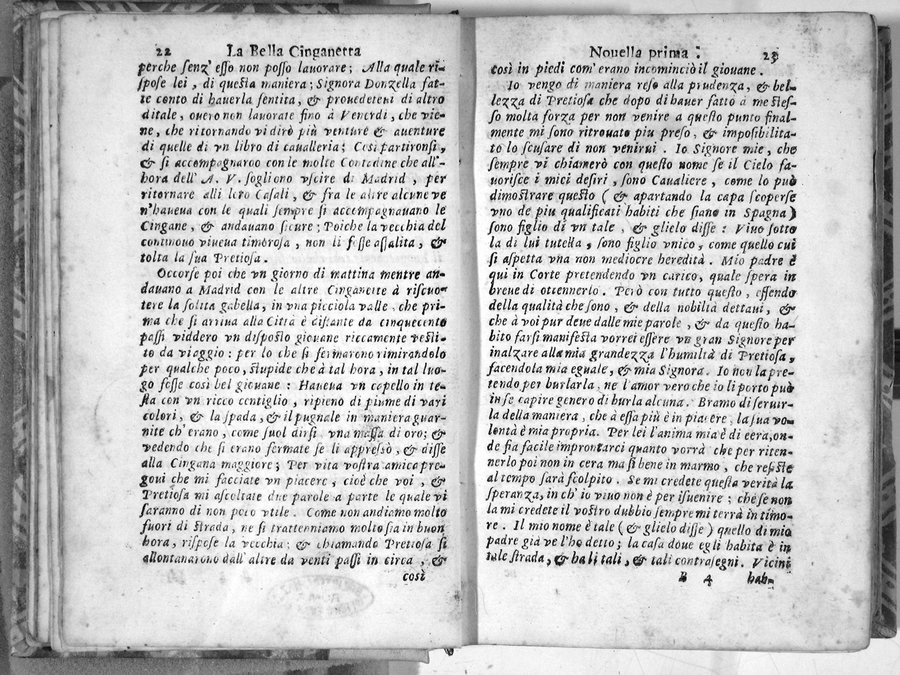 22 La Bella Cinganetta
perche senz' esso non posso lauorare; Alla quale ri-
spose lei, di questa maniera; Signora Donzella fat-
te conto di hauerla sentita, & prouedeteui di altro
ditale, ouero non lauorate fino à Venerdì, che vie-
ne, che ritornando vi dirò più venture & auenture
di quelle di vn libro di caualleria; Così partironsi,
& si accompagnaroo con le molte Contadine che all'
hora dell' A. V. sogliono vscire di Madrid, per
ritornare alli loro Casali, & fra le altre alcune ve
n'haueua con le quali sempre si accompagnauano le
Cingane, & andauano sicure; Poiche la vecchia del
continouo viueua timorosa, non li fosse assalita, &
tolta la sua Pretiosa.
Occorse poi che vn giorno di mattina mentre an-
dauano a Madrid con le altre Cinganette à riscuo-
tere la solita gabella, in vna picciola valle, che pri-
ma che si arriua alla Città è distante da cinquecento
passi viddero vn disposto giouane riccamente vesti-
to da viaggio: per lo che si fermarono rimirandolo
per qualche poco, stupide che à tal hora, in tal luo-
go fosse così bel giouane: Haueua vn capello in te-
sta con vn ricco centiglio, ripieno di piume di vari
colori, & la spada, & il pugnale in maniera guar-
nite ch'erano, come suol dirsi, vna massa di oro; &
vedendo che si erano fermate se li appressò, & disse
alla Cingana maggiore; Per vita vostra amica pre-
goui che mi facciate vn piacere, cioè che voi, &
Pretiosa mi ascoltate due parole a parte le quali vi
saranno di non poco vtile. Come non andiamo molto
fuori di strada, ne si trattenniamo molto sia in buon
hora, rispose la vecchia; & chiamando Pretiosa si
allontanarono dall'altre da venti passi in circa, &
così
Nouella prima: 23
così in piedi com'erano incominciò il giouane.
Io vengo di maniera reso alla prudenza, & bel-
lezza di Pretiosa che dopo di hauer fatto à me stes-
so molta forza per non venire a questo punto final-
mente mi sono ritrouato piu preso, & impossibilita-
to lo scusare di non venirui. Io Signore mie, che
sempre vi chiamerò con questo nome se il Cielo fa-
uorisce i miei desiri, sono Caualiere, come lo può
dimostrare questo ( & apartando la capa scoperse
vno de piu qualificati habiti che siano in Spagna)
sono figlio di vn tale, & glielo disse: Viuo sotto
la di lui tutella, sono figlio vnico, come quello cui
si aspetta vna non mediocre heredità. Mio padre è
qui in Corte pretendendo vn carico, quale spera in
breue di ottennerlo. Però con tutto questo, essendo
della qualità che sono, & della nobiltà dettaui, &
che à voi pur deue dalle mie parole, & da questo ha-
bito farsi manifesta vorrei essere vn gran Signore per
inalzare alla mia grandezza l'humiltà di Pretiosa,
facendola mia eguale, & mia Signora. Io non la pre-
tendo per burlarla, ne l'amor vero che io li porto può
in se capire genero di burla alcuna. Bramo di seruir-
la della maniera, che à essa più è in piacere, la sua vo-
lontà è mia propria. Per lei l'anima mia è di cera, on-
de sia facile improntarci quanto vorrà che per riten-
nerlo poi non in cera ma si bene in marmo, che resiste
al tempo sarà scolpito. Se mi credete questa verità la
speranza, in ch' io viuo non è per isuenire; che se non
la mi credete il vostro dubbio sempre mi terrà in timo-
re. Il mio nome è tale ( & glielo disse) quello di mio
padre già ve l'ho detto; la casa doue egli habita è in
tale strada, & ha li tali, & tali contrasegni. Vicini
B 4 hab-